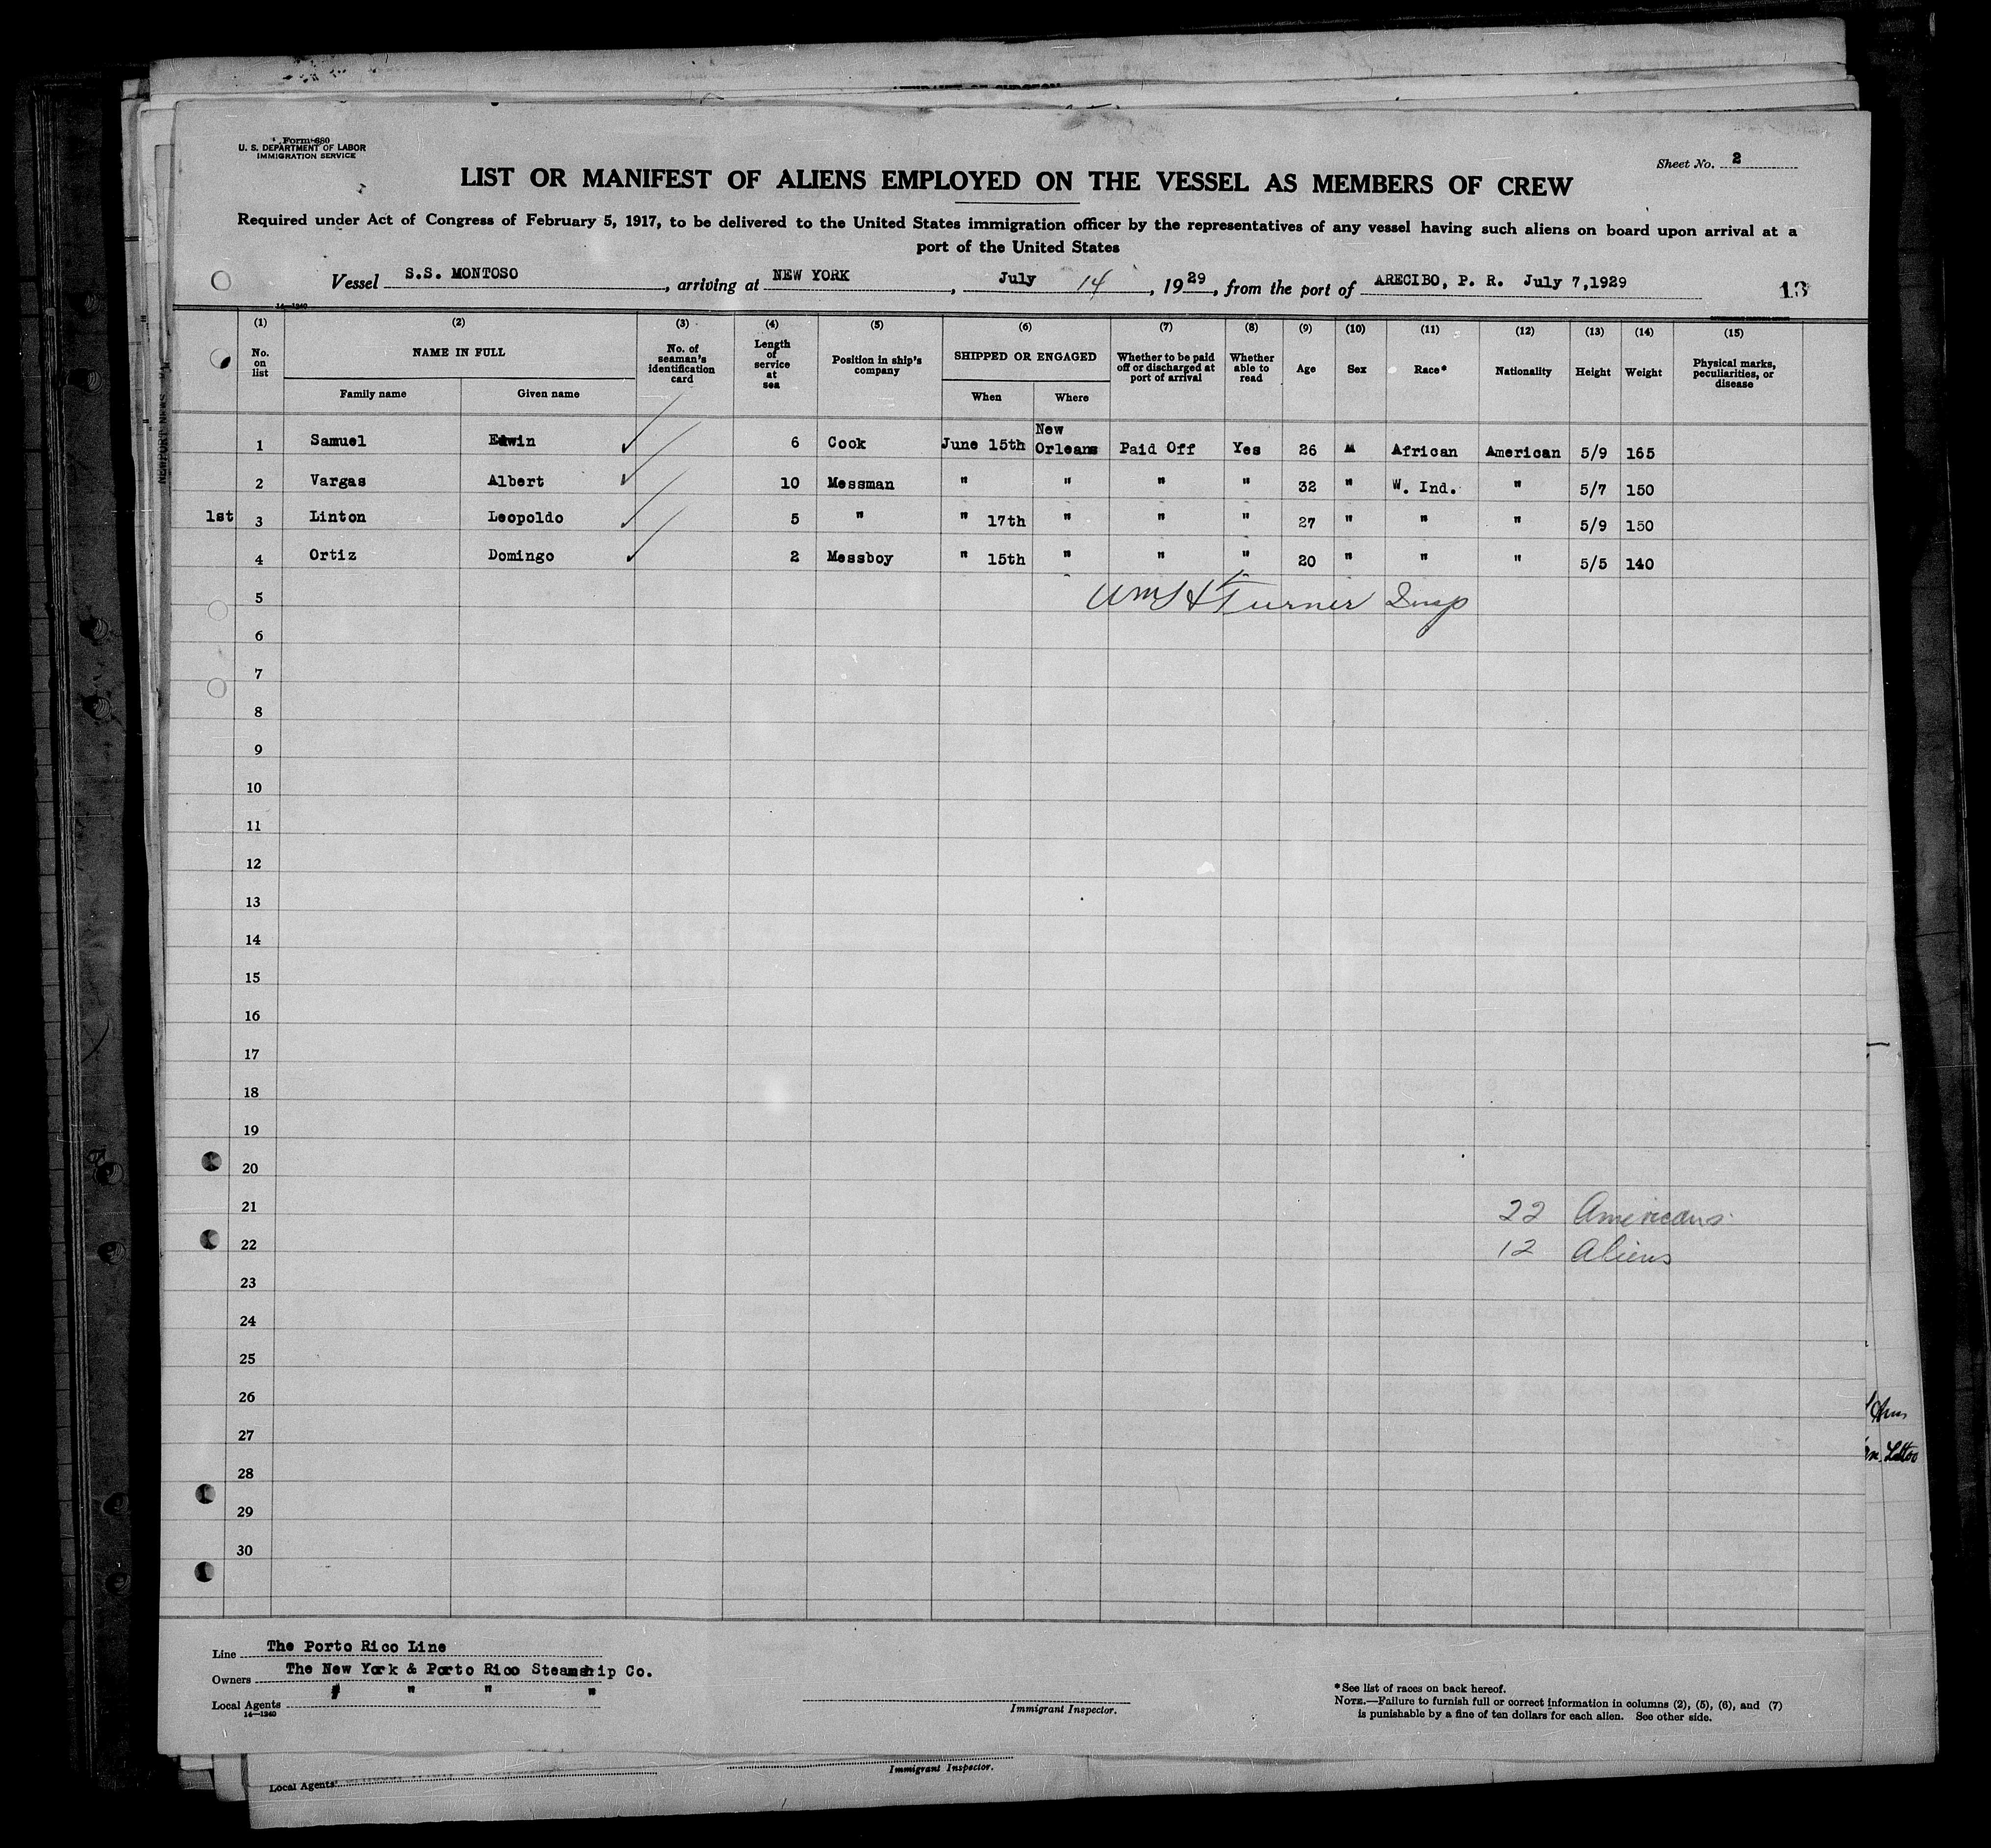 Form 680
U. S. DEPARTMENT OF LABOR
IMMIGRATION SERVICE
Sheet No. 2
LIST OR MANIFEST OF ALIENS EMPLOYED ON THE VESSEL AS MEMBERS OF CREW
Required under Act of Congress of February 5, 1917, to be delivered to the United States immigration officer by the representatives of any vessel having such aliens on board upon arrival at a
port of the United States
Vessel S.S. MONTOSO, arriving at NEW YORK, July 14, 1929, from the port of ARECIBO, P. R. July 7,1929
13
14—1240
(1) (2) (3) (4) (5) (6) (7) (8) (9) (10) (11) (12) (13) (14) (15)
No. on list NAME IN FULL No. of seaman's identification card Length of service at sea Position in ship's company SHIPPED OR ENGAGED Whether to be paid off or discharged at port of arrival Whether able to read Age Sex Race* Nationality Height Weight Physical marks, peculiarities, or disease
Family name Given name When Where
1 Samuel Edwin 6 Cook June 15th New Orleans Paid Off Yes 26 M African American 5/9 165
2 Vargas Albert 10 Messman " " " " 32 " W. Ind. " 5/7 150
1st 3 Linton Leopoldo 5 " " 17th " " " 27 " " " 5/9 150
4 Ortiz Domingo 2 Messboy " 15th " " " 20 " " " 5/5 140
5 Wm H Turner Insp
6
7
8
9
10
11
12
13
14
15
16
17
18
19
20
21 22 Americans
22 12 Aliens
23
24
25
26
27
28
29
30
Line The Porto Rico Line
Owners The New York & Porto Rico Steamship Co.
Local Agents " " " "
14—1240
Immigrant Inspector.
*See list of races on back hereof.
NOTE.—Failure to furnish full or correct information in columns (2), (5), (6), and (7)
is punishable by a fine of ten dollars for each alien. See other side.
Local Agents
Immigrant Inspector.
NEWPORT NEWS